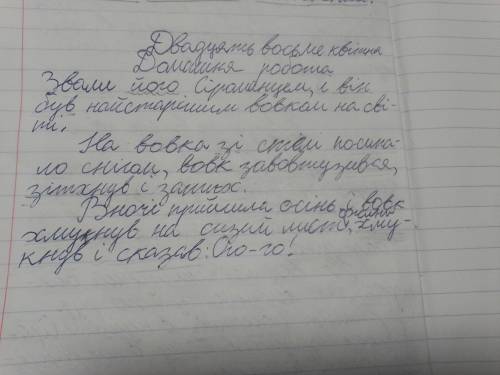 Двадцять восьме квітня
Домашня робота
Звали його Сіроманцем, і він
був найстарішим вовком на сві-
ті.
На вовка зі стелі посипа-
ло снігом, вовк завовтузився,
зітхнув і затих.
Вночі прийшла осінь і вовк
хмукнув на сизий лист, хму-
кнув і сказав: Ого-го!